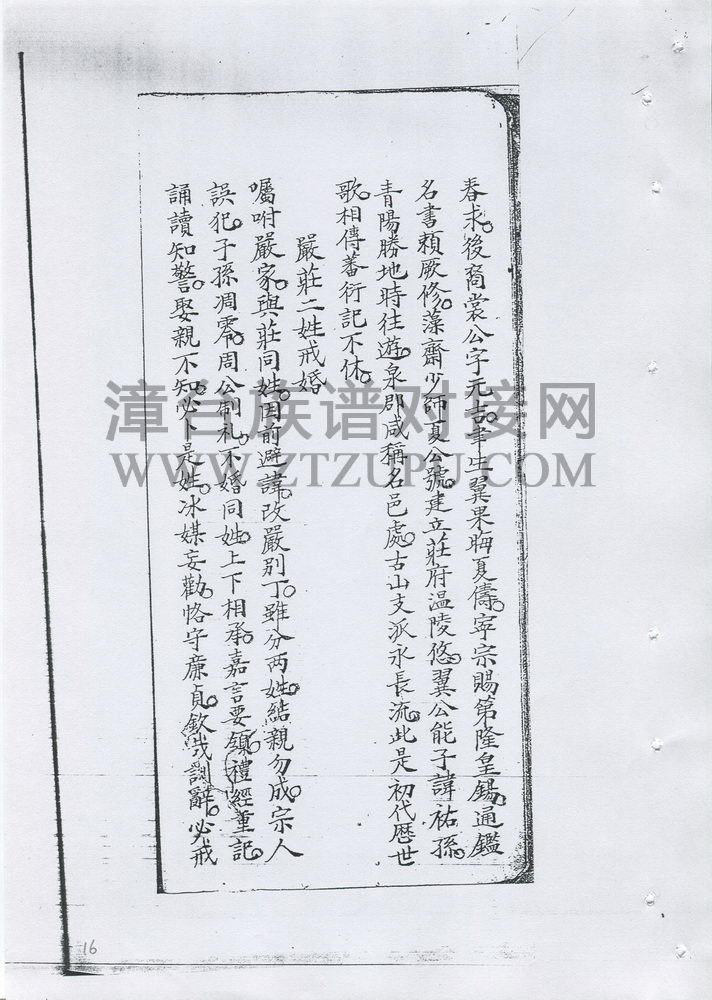 春求。後裔裳公字元吉。生翼果晦夏儔。寧宗賜第隆皇錫。通鑑
名書賴厥修。藻齋少師夏公號。建立莊府温陵悠。翼公能子諱祐孫。
青陽勝地時往遊。泉郡咸稱名邑處。古山支派永長流。此是初代歷世
歌。相傳蕃衍記不休。
嚴莊二姓戒婚
囑咐嚴家。與莊同姓。因前避諱。改嚴别丁。雖分两姓。結親勿成。宗人
誤犯。子孫凋零。周公制礼。不婚同姓。上下相承。嘉言要領。禮經重記。
誦讀知警。娶親不知。必卜是姓。冰媒妄勸。恪守廉貞。欽哉訓辭。必戒
漳台族谱对接网
WWW.ZTZUPU.COM
16